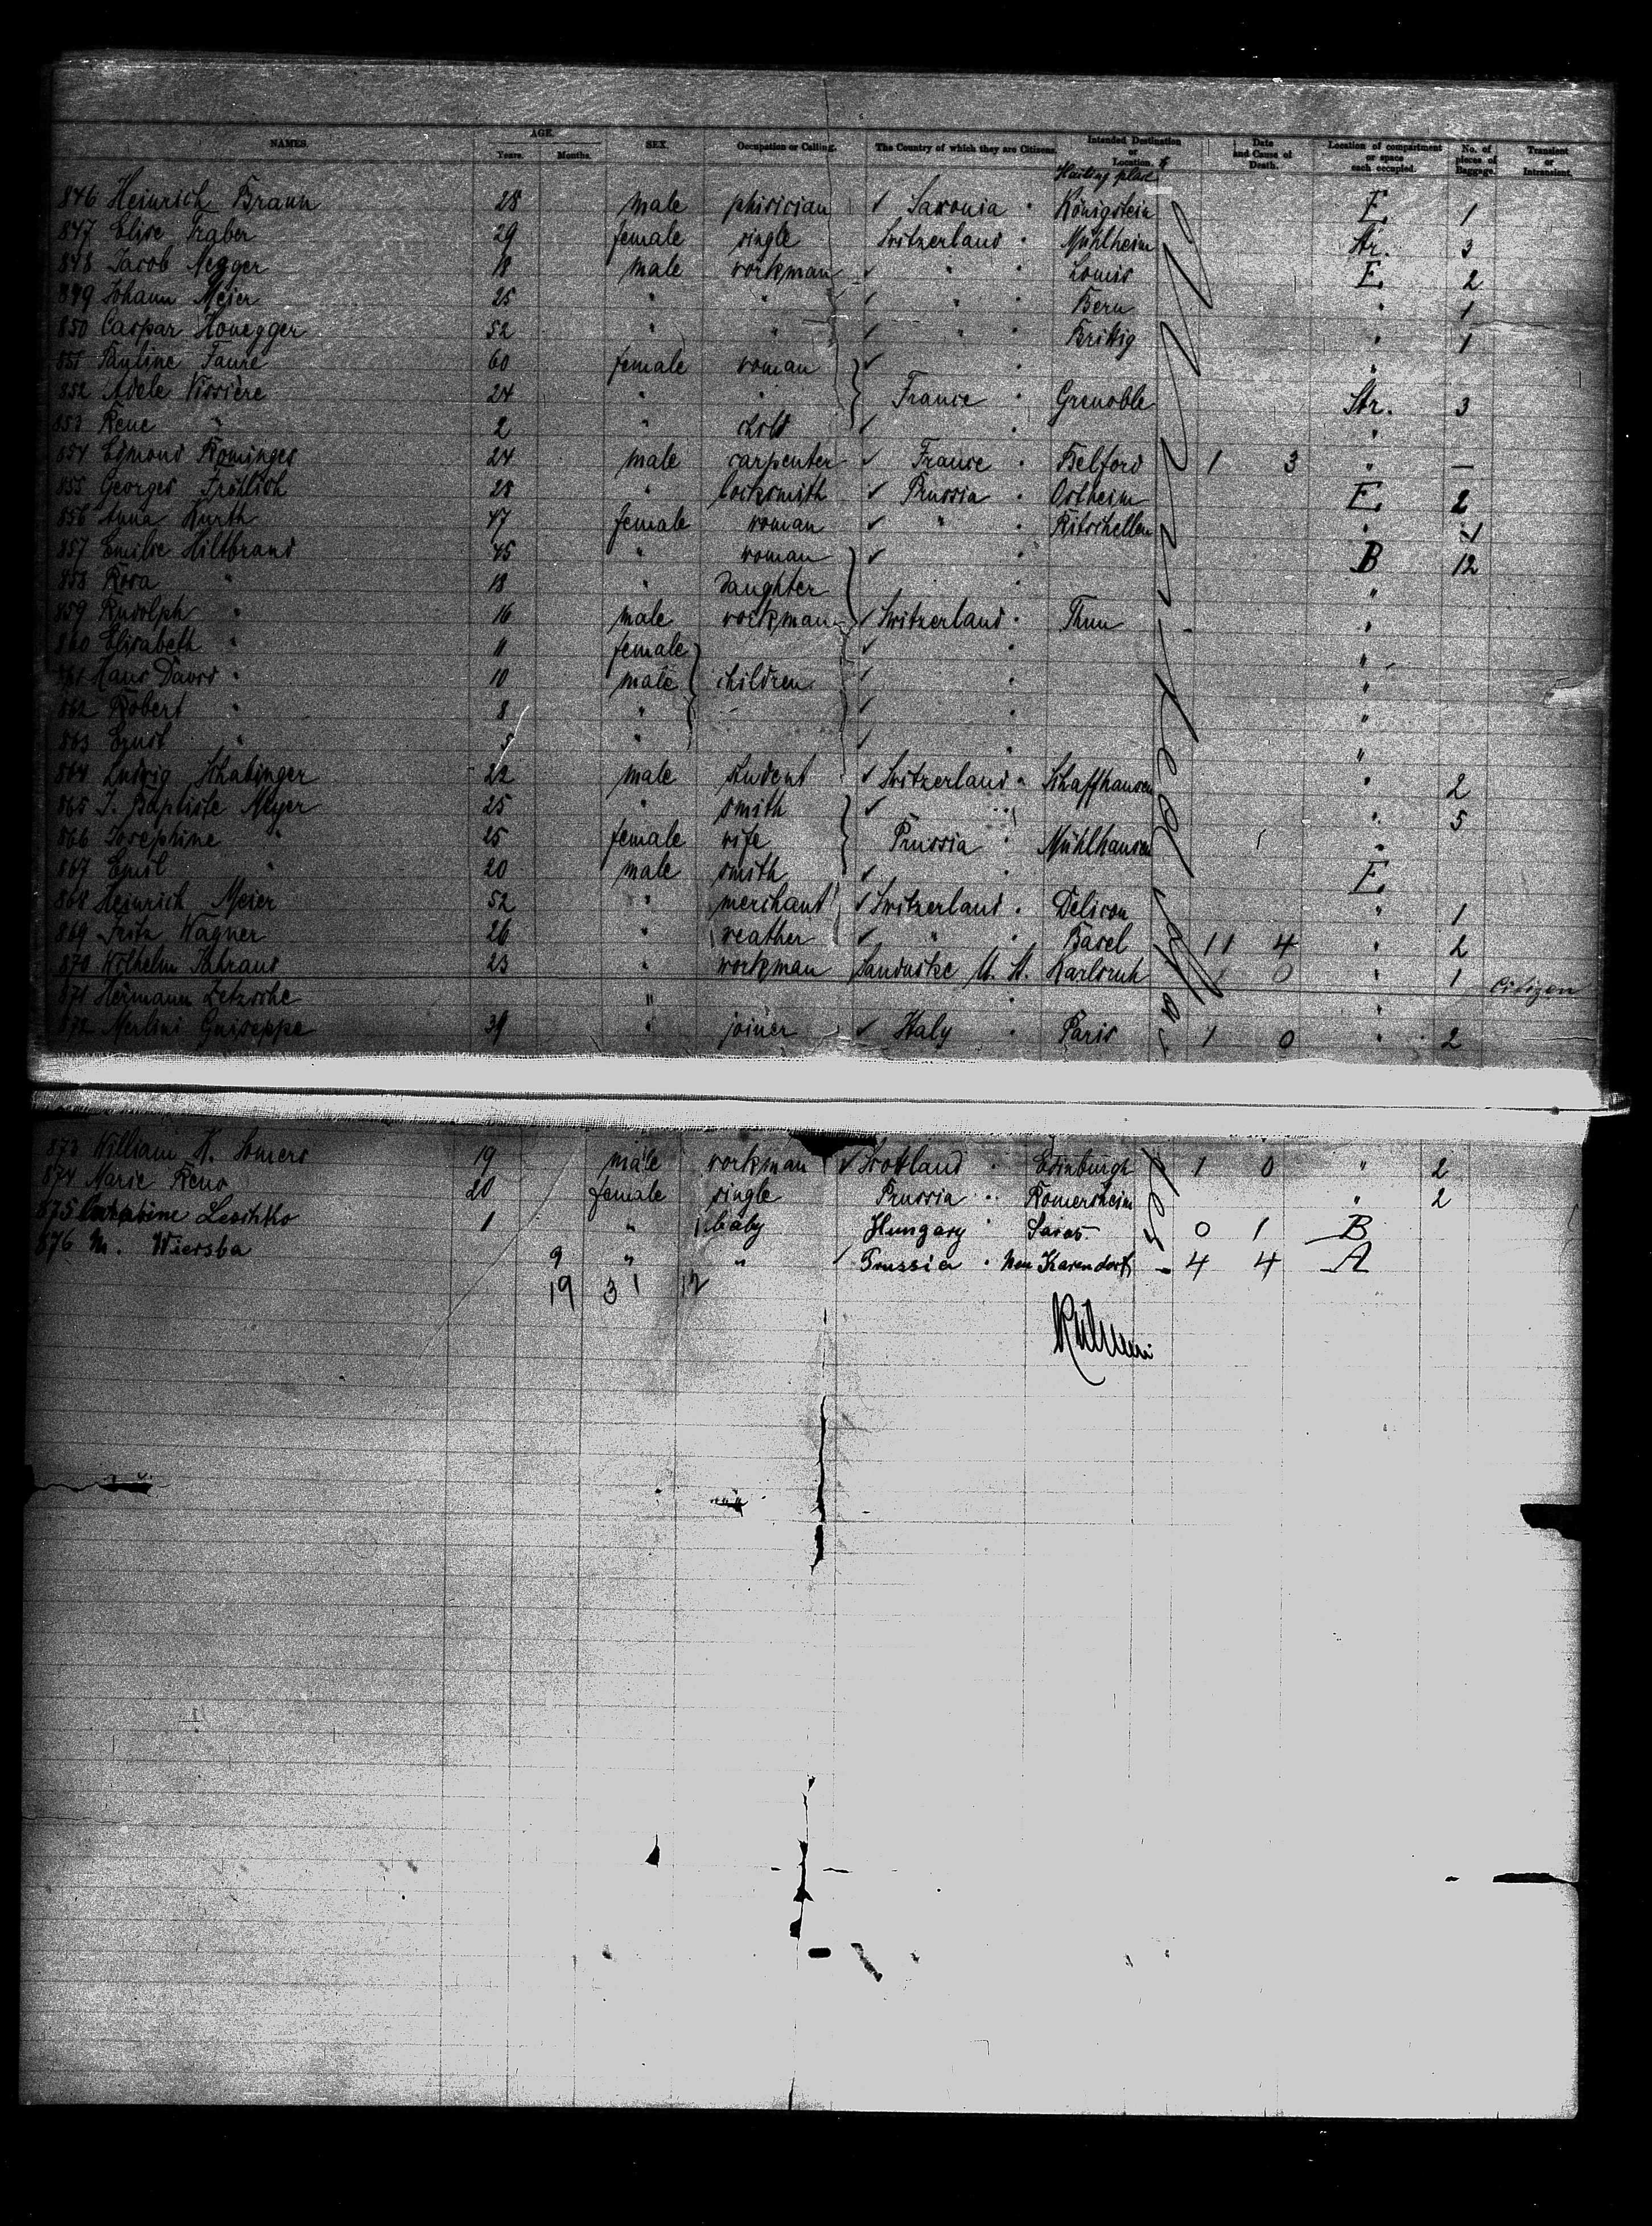 NAMES. AGE. Years. Months. SEX. Occupation or Calling. The Country of which they are Citizens. Intended Destination or Location. Date and Cause of Death. Location of compartment or space each occupied. No. of pieces of Baggage. Transient or Intransient.
846 Heinrich Braun 28 male phisician ✓ Saxonia " Königstein E. 1
847 Elise Traber 29 female single Switzerland " Mühlheim Str. 3
848 Jacob Negger 18 male workman ✓ " " Louis E. 2
849 Johann Meier 25 " " ✓ " " Bern " 1
850 Caspar Honegger 52 " " ✓ " " " 1
851 Pauline Faure 60 female woman ✓ " "
852 Adele Vissière 24 " " France " Grenoble Str. 3
853 Rene " 2 " ✓ " "
854 Edmond 24 male carpenter ✓ France " Belford 1 3 " —
855 Georges Frötlich 28 " locksmith ✓ Prussia " Ostheim E. 2
856 Anna Kurth 47 female woman ✓ " " "
857 Emilie Hiltbrand 45 " woman ✓ " B 12
858 Rosa " 18 " Daughter "
859 Rudolph " 16 male workman ✓ Switzerland " Thun "
860 Elisabeth " 11 female ✓ " "
861 Hans David " 10 male children ✓ " "
862 Robert " 8 " ✓ "
863 Ernst " 5 " ✓ " "
864 Ludwig 22 male student ✓ Switzerland " Schaffhausen " 2
865 J. Baptiste Meyer 25 " smith ✓ " 5
866 Josephine " 25 female wife Prussia " Mühlhausen "
867 Emil " 20 male smith ✓ " E.
868 Heinrich Meier 52 " merchant ✓ Switzerland " " 1
869 Fritz Wagner 26 " weather ✓ " " Basel 11 4 " 2
870 Wilhelm 23 " workman Karlsruh 1 0 " 1 Citizen
871 Hermann Zetzsche " " "
872 Merlini Guiseppe 39 " joiner ✓ Italy " Paris 1 0 " 2
873 William H. Somers 19 male workman ✓ Scotland " Edinburgh 1 0 " 2
874 Marie Reno 20 female single Prussia " Romersheim " 2
875 Leschko 1 " baby Hungary " Saros 0 1 B
876 M. Wiersba 9 " " Prussia " 4 4 A
19 31 12